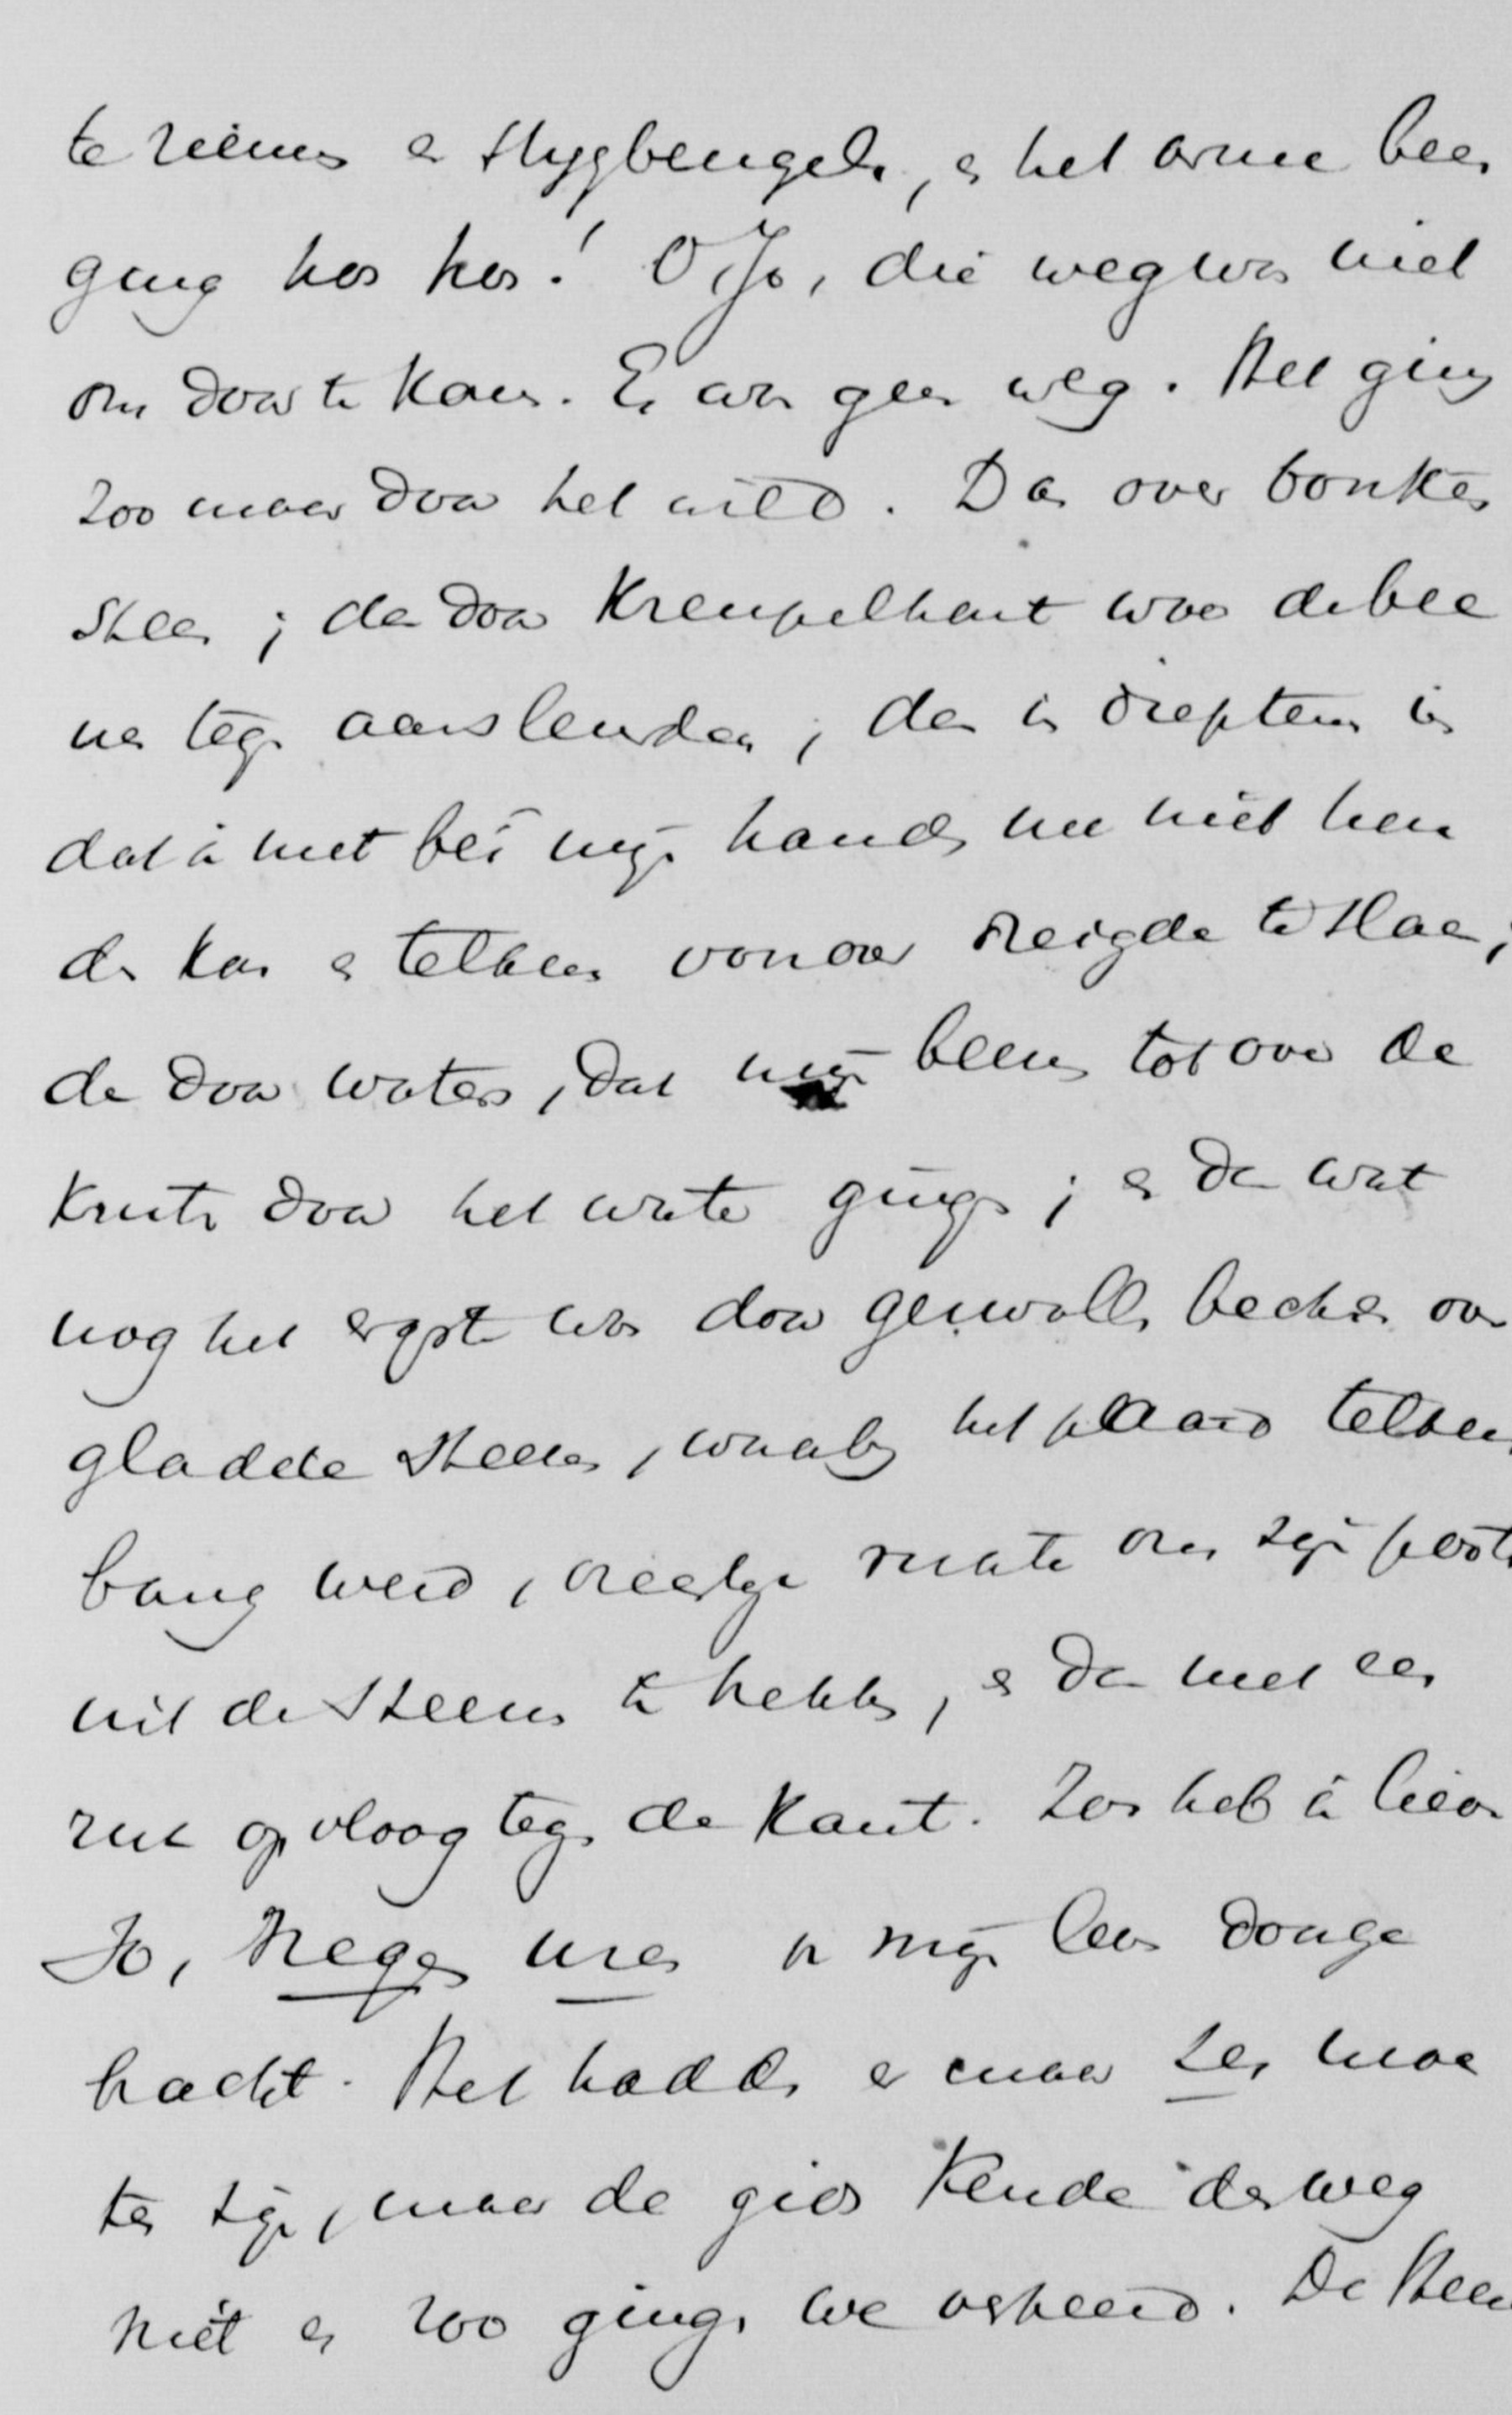 te riemen en stygbeugels, en het arme been
ging hos hos! O Jo, die weg was niet
om door te komen. Er was geen weg. Het ging
zoo maar door het wild. Dan over bonken
steen; dan door Kreupelhout waar de bee
nen tegen aanslierden; dan in diepten in
dat ik met bei mijn handen me niet hou
den kon en telkens voorover dreigde te slaan;
dan door water, dat mijn beenen tot over de
Knieën door het water gingen; en dan wat
nog het ergste was door gezwollen beeken over
gladde steenen, waarby het paard telkens
bang werd, vreeslyk rukte om zyn pooten
uit de steenen te hebben, en dan met een
ruk op vloog tegen de Kant. Zoo heb ik lieve
Jo, negen uren in mijn leven doorge
bracht. Het hadden er maar zes moe
ten zyn, maar de gids Kende den weg
niet en zoo gingen we verkeerd. De steen